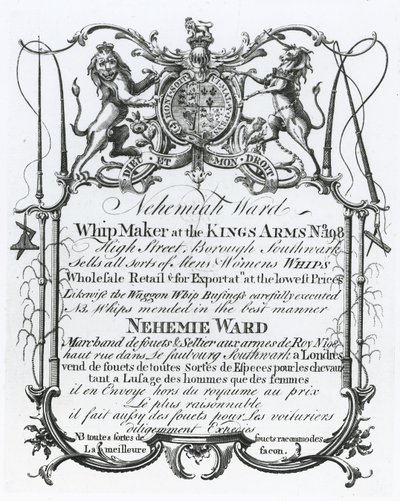 HONI SOIT QUI MAL Y PENSE
DIEU ET MON DROIT
Nehemiah Ward
Whip Maker at the KINGS ARMS No. 198
High Street, Borough Southwark
Sells all Sorts of Mens & Womens WHIPS
Wholesale Retail & for Exportatn. at the lowest Prices
Likewise the Waggon Whip Business carefully executed
NB. Whips mended in the best manner
NEHEMIE WARD
Marchand de fouets & Sellier aux armes de Roy No. 198
haut rue dans Le faubourg Southwark a Londres
vend de fouets de toutes Sortes de Especes pour les chevaux
tant a Lusage des hommes que des femmes
il en Envoye hors du royaume au prix
Le plus raisonnable
il fait aussy des fouets pour Les voituriers
diligemment Expedies
NB toutes sortes de fouets racommodes
La meilleure facon.